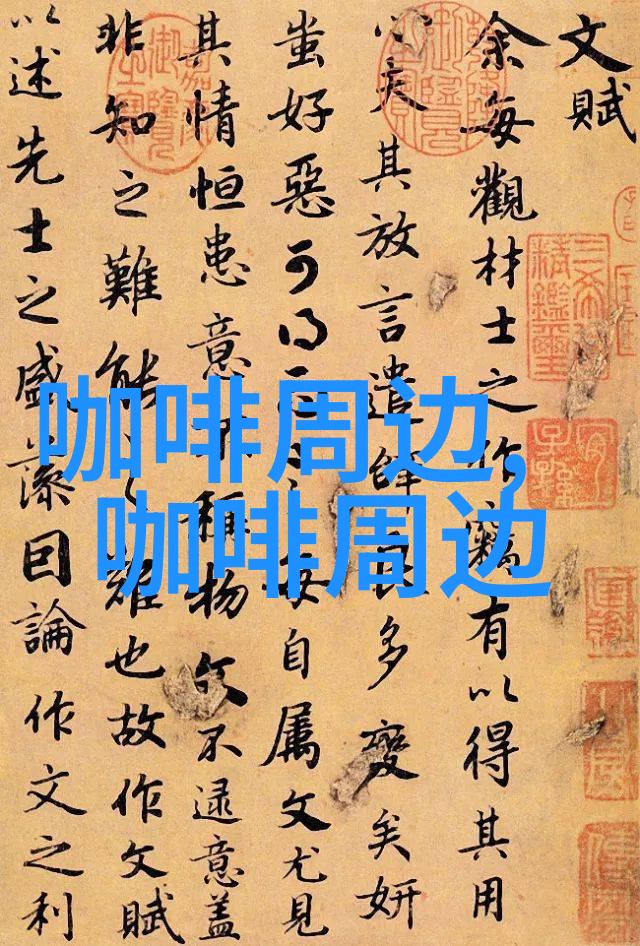 咖啡周边,
咖啡周边
文賦
余每觀材士之作竊有以得其用
心夫其放言遣辭良多變矣妍
蚩好惡可得每自屬文尤見
其情恒患意不稱物文不逮意蓋
非知之難能之難也故作文賦
以述先士之盛藻因論作文之利
三希堂
精鑑璽
宜
子孫